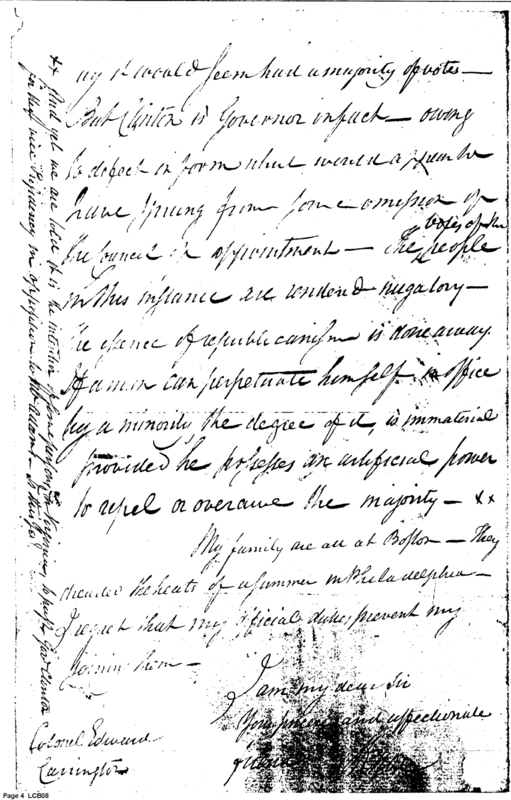 ay it would seem had a majority of votes —
But Clinton is Governor in fact — owing
to defect in form which would appear to
have sprung from some omission of
the Council of appointment — The votes of the people
in this instance are rendered nugatory —
the essence of republicanism is done away.
If a man can perpetuate himself in office
by a minority, the degree of it, is immaterial
provided he possesses an artificial power
to repel or overawe the majority — xx
My family are all at Boston — They
dreaded the heats of a summer in Philadelphia —
I regret that my official duties, prevent my
joining them —
I am my dear Sir
Your sincere and affectionate
friend
Colonel Edward
Carrington
xx And yet we are told it is the intention of some persons in Virginia, to push Govr Clinton
for the vice Presidency in opposition to Mr Adams — Is this so
Page 4 LCB08